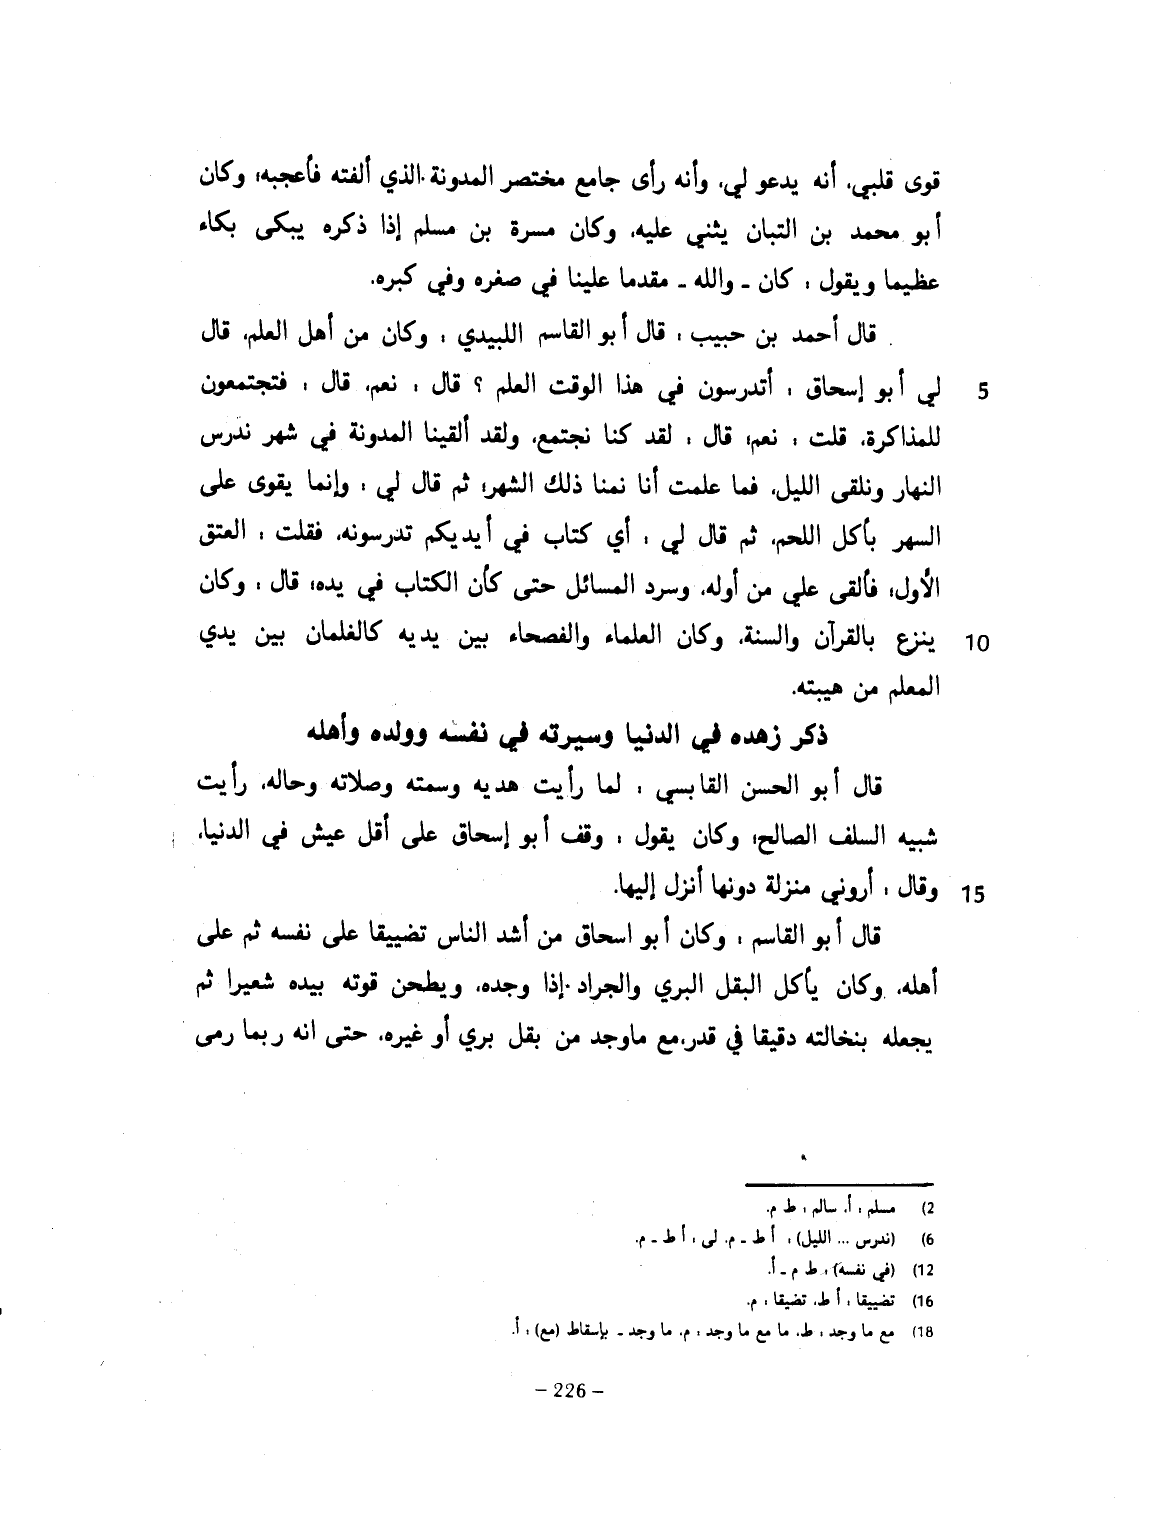 قوى قلبي، أنه يدعو لي، وأنه رأى جامع مختصر المدونة الذي ألفته فأعجبه؛ وكان
أبو محمد بن التبان يثني عليه، وكان مسرة بن مسلم إذا ذكره يبكى بكاء
عظيما ويقول : كان ـ والله ـ مقدما علينا في صغره وفي كبره.
قال أحمد بن حبيب : قال أبو القاسم اللبيدي : وكان من أهل العلم، قال
5 لي أبو إسحاق : أتدرسون في هذا الوقت العلم ؟ قال : نعم، قال : فتجتمعون
للمذاكرة، قلت : نعم؛ قال : لقد كنا نجتمع، ولقد ألقينا المدونة في شهر ندرس
النهار ونلقى الليل، فما علمت أنا نمنا ذلك الشهر؛ ثم قال لي : وإنما يقوى على
السهر بأكل اللحم، ثم قال لي : أي كتاب في أيديكم تدرسونه، فقلت : العتق
الأول؛ فألقى علي من أوله، وسرد المسائل حتى كأن الكتاب في يده؛ قال : وكان
10 ينزع بالقرآن والسنة، وكان العلماء والفصحاء بين يديه كالغلمان بين يدي
المعلم من هيبته.
ذكر زهده في الدنيا وسيرته في نفسه وولده وأهله
قال أبو الحسن القابسي : لما رأيت هديه وسمته وصلاته وحاله، رأيت
شبيه السلف الصالح؛ وكان يقول : وقف أبو إسحاق على أقل عيش في الدنيا،
15 وقال : أروني منزلة دونها أنزل إليها.
قال أبو القاسم : وكان أبو اسحاق من أشد الناس تضييقا على نفسه ثم على
أهله، وكان يأكل البقل البري والجراد إذا وجده، ويطحن قوته بيده شعيرا ثم
يجعله بنخالته دقيقا في قدر،مع ماوجد من بقل بري أو غيره، حتى انه ربما رمى
2) مسلم : أ. سالم : ط م.
6) (ندرس ... الليل) : أ ط ـ م. لى : أ ط ـ م.
12) (في نفسه) : ط م ـ أ.
16) تضييقا : أ ط، تضيقا : م.
18) مع ما وجد : ط، ما مع ما وجد : م، ما وجد ـ بإسقاط (مع) : أ.
– 226 –